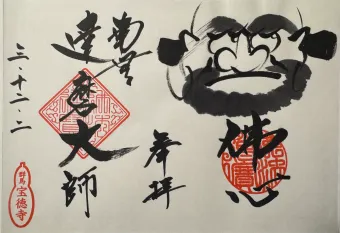 佛心
奉拝
南無
達磨大師
三十一.二
群馬
宝徳寺